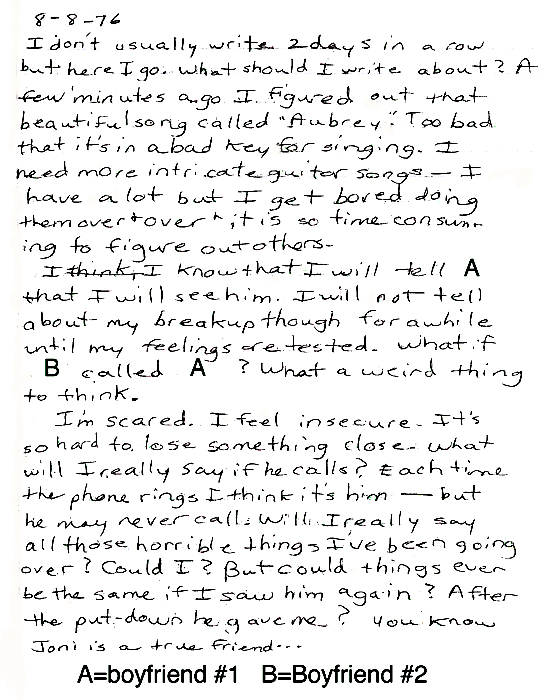 8-8-76
I don't usually write 2 days in a row
but here I go. What should I write about? A
few minutes ago I figured out that
beautiful song called "Aubrey". Too bad
that it's in a bad key for singing. I
need more intricate guitar songs — I
have a lot but I get bored doing
them over + over + it is so time consum-
ing to figure out others.
I think, I know that I will tell A
that I will see him. I will not tell
about my breakup though for awhile
until my feelings are tested. What if
B called A ? What a weird thing
to think.
I'm scared. I feel insecure. It's
so hard to lose something close. What
will I really say if he calls? Each time
the phone rings I think it's him — but
he may never call. Will I really say
all those horrible things I've been going
over? Could I? But could things ever
be the same if I saw him again? After
the put-down he gave me? You know
Joni is a true friend...
A=boyfriend #1 B=Boyfriend #2